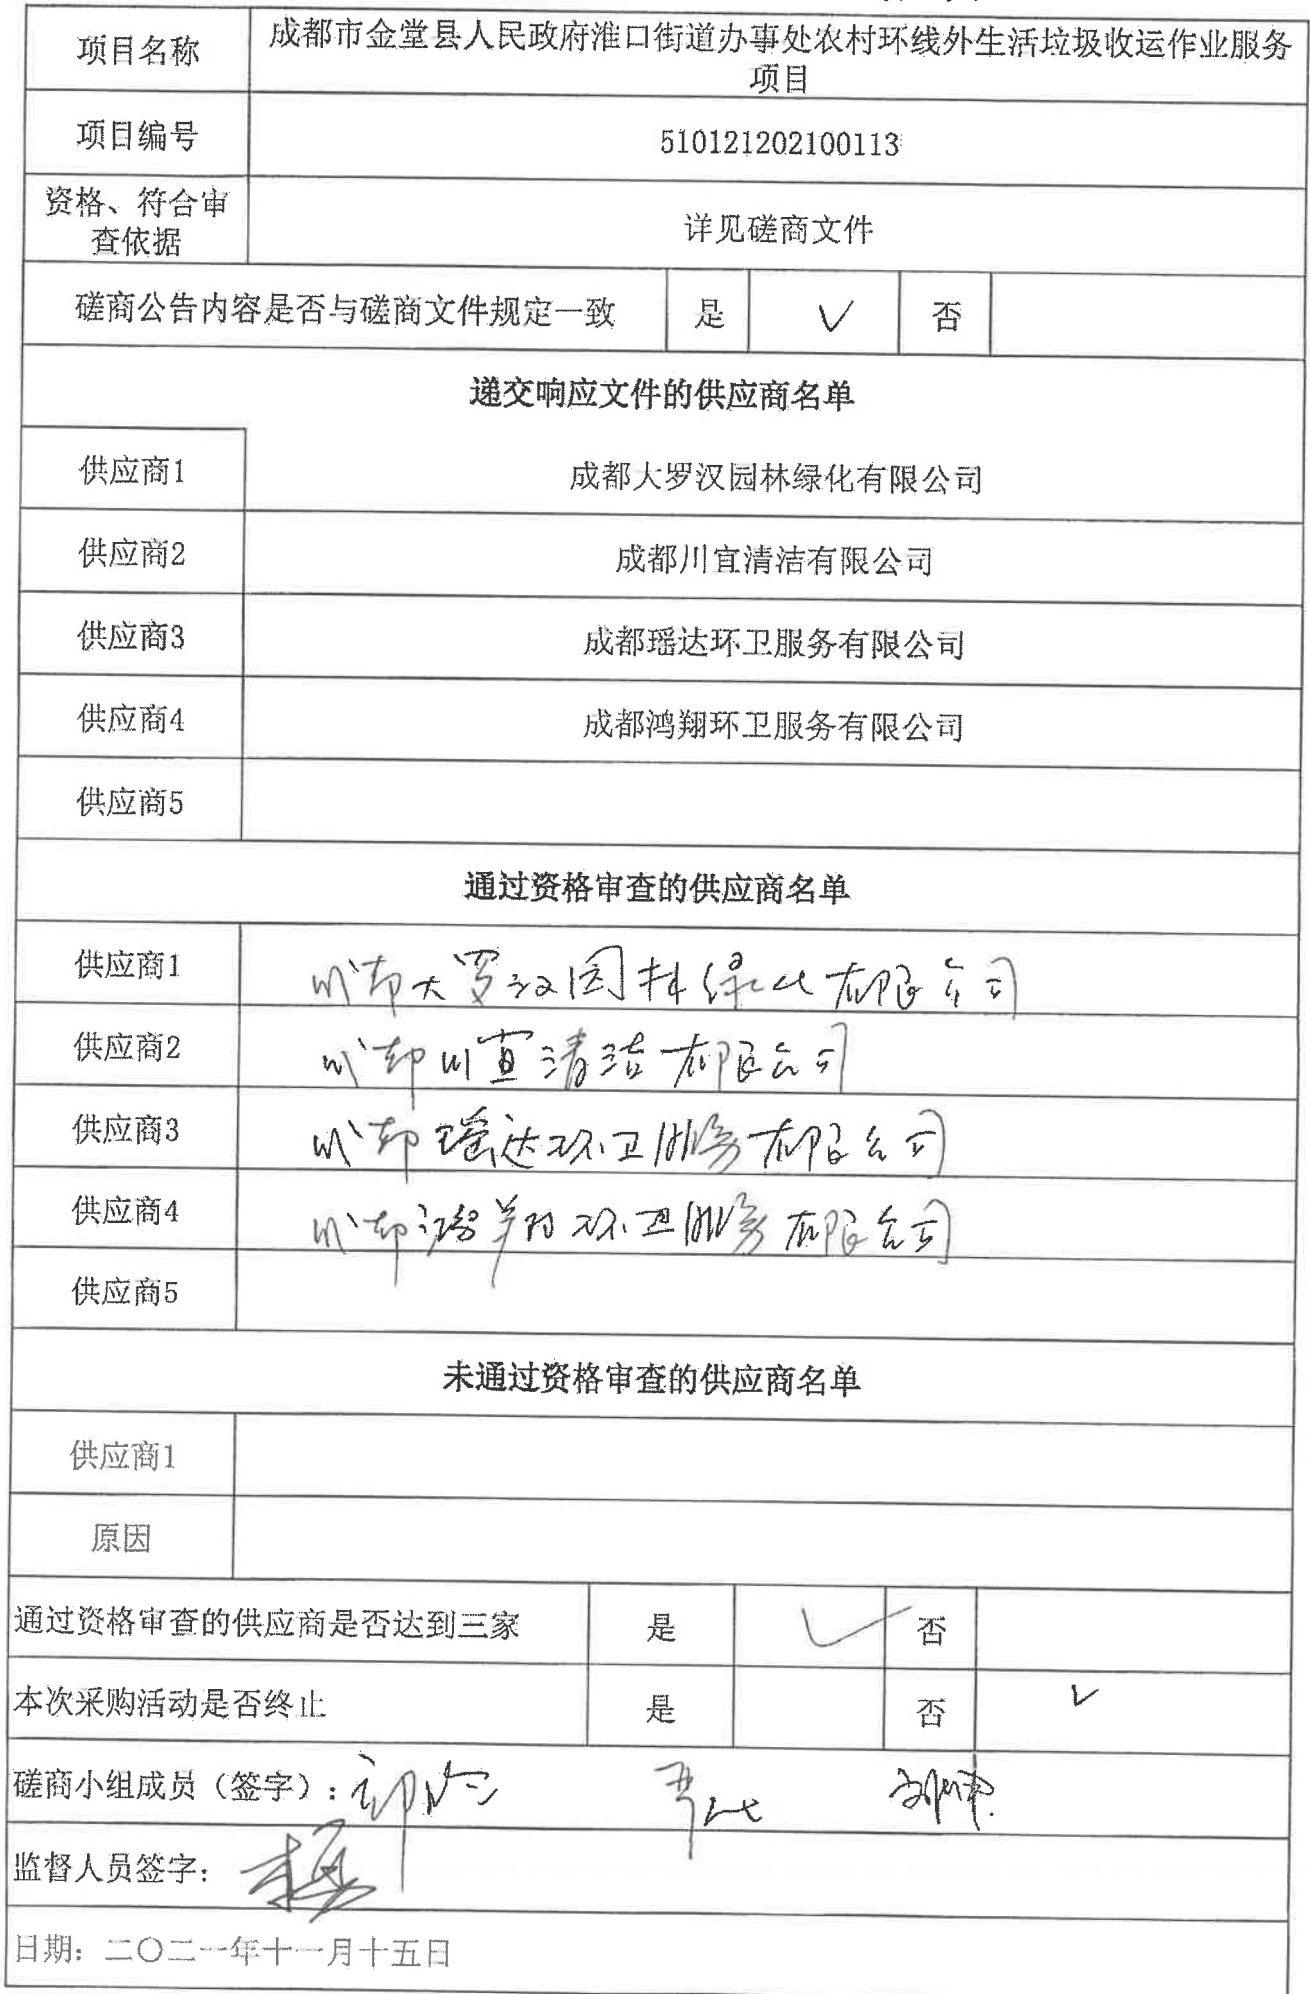 项目名称 成都市金堂县人民政府淮口街道办事处农村环线外生活垃圾收运作业服务
项目
项目编号 510121202100113
资格、符合审
查依据 详见磋商文件
磋商公告内容是否与磋商文件规定一致 是 √ 否
递交响应文件的供应商名单
供应商1 成都大罗汉园林绿化有限公司
供应商2 成都川宜清洁有限公司
供应商3 成都瑶达环卫服务有限公司
供应商4 成都鸿翔环卫服务有限公司
供应商5
通过资格审查的供应商名单
供应商1 成都大罗汉园林绿化有限公司
供应商2 成都川宜清洁有限公司
供应商3 成都瑶达环卫服务有限公司
供应商4 成都鸿翔环卫服务有限公司
供应商5
未通过资格审查的供应商名单
供应商1
原因
通过资格审查的供应商是否达到三家 是 √ 否
本次采购活动是否终止 是 否 √
磋商小组成员（签字）:
监督人员签字:
日期: 二〇二一年十一月十五日